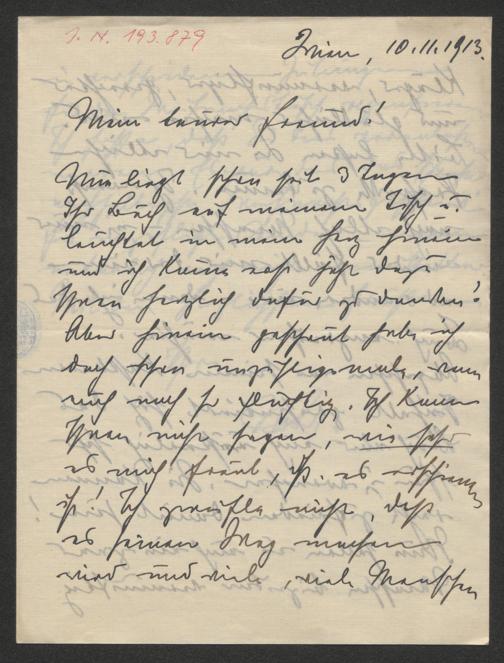 I. N. 193.879
Wien, 10.11.1913.
Mein teurer Freund!
Nun liegt schon seit 3 Tagen
Ihr Buch auf meinem Tisch u.
leuchtet in mein Herz hinein
und ich komme erst jetzt dazu
Ihnen herzlich dafür zu danken!
Aber hinein geschaut habe ich
doch schon unzähligemale, wenn
auch noch so flüchtig. Ich kann
Ihnen nicht sagen, wie sehr
es mich freut, daß es erschienen
ist! Ich zweifle nicht, daß
es seinen Weg machen
wird und viele, viele Menschen